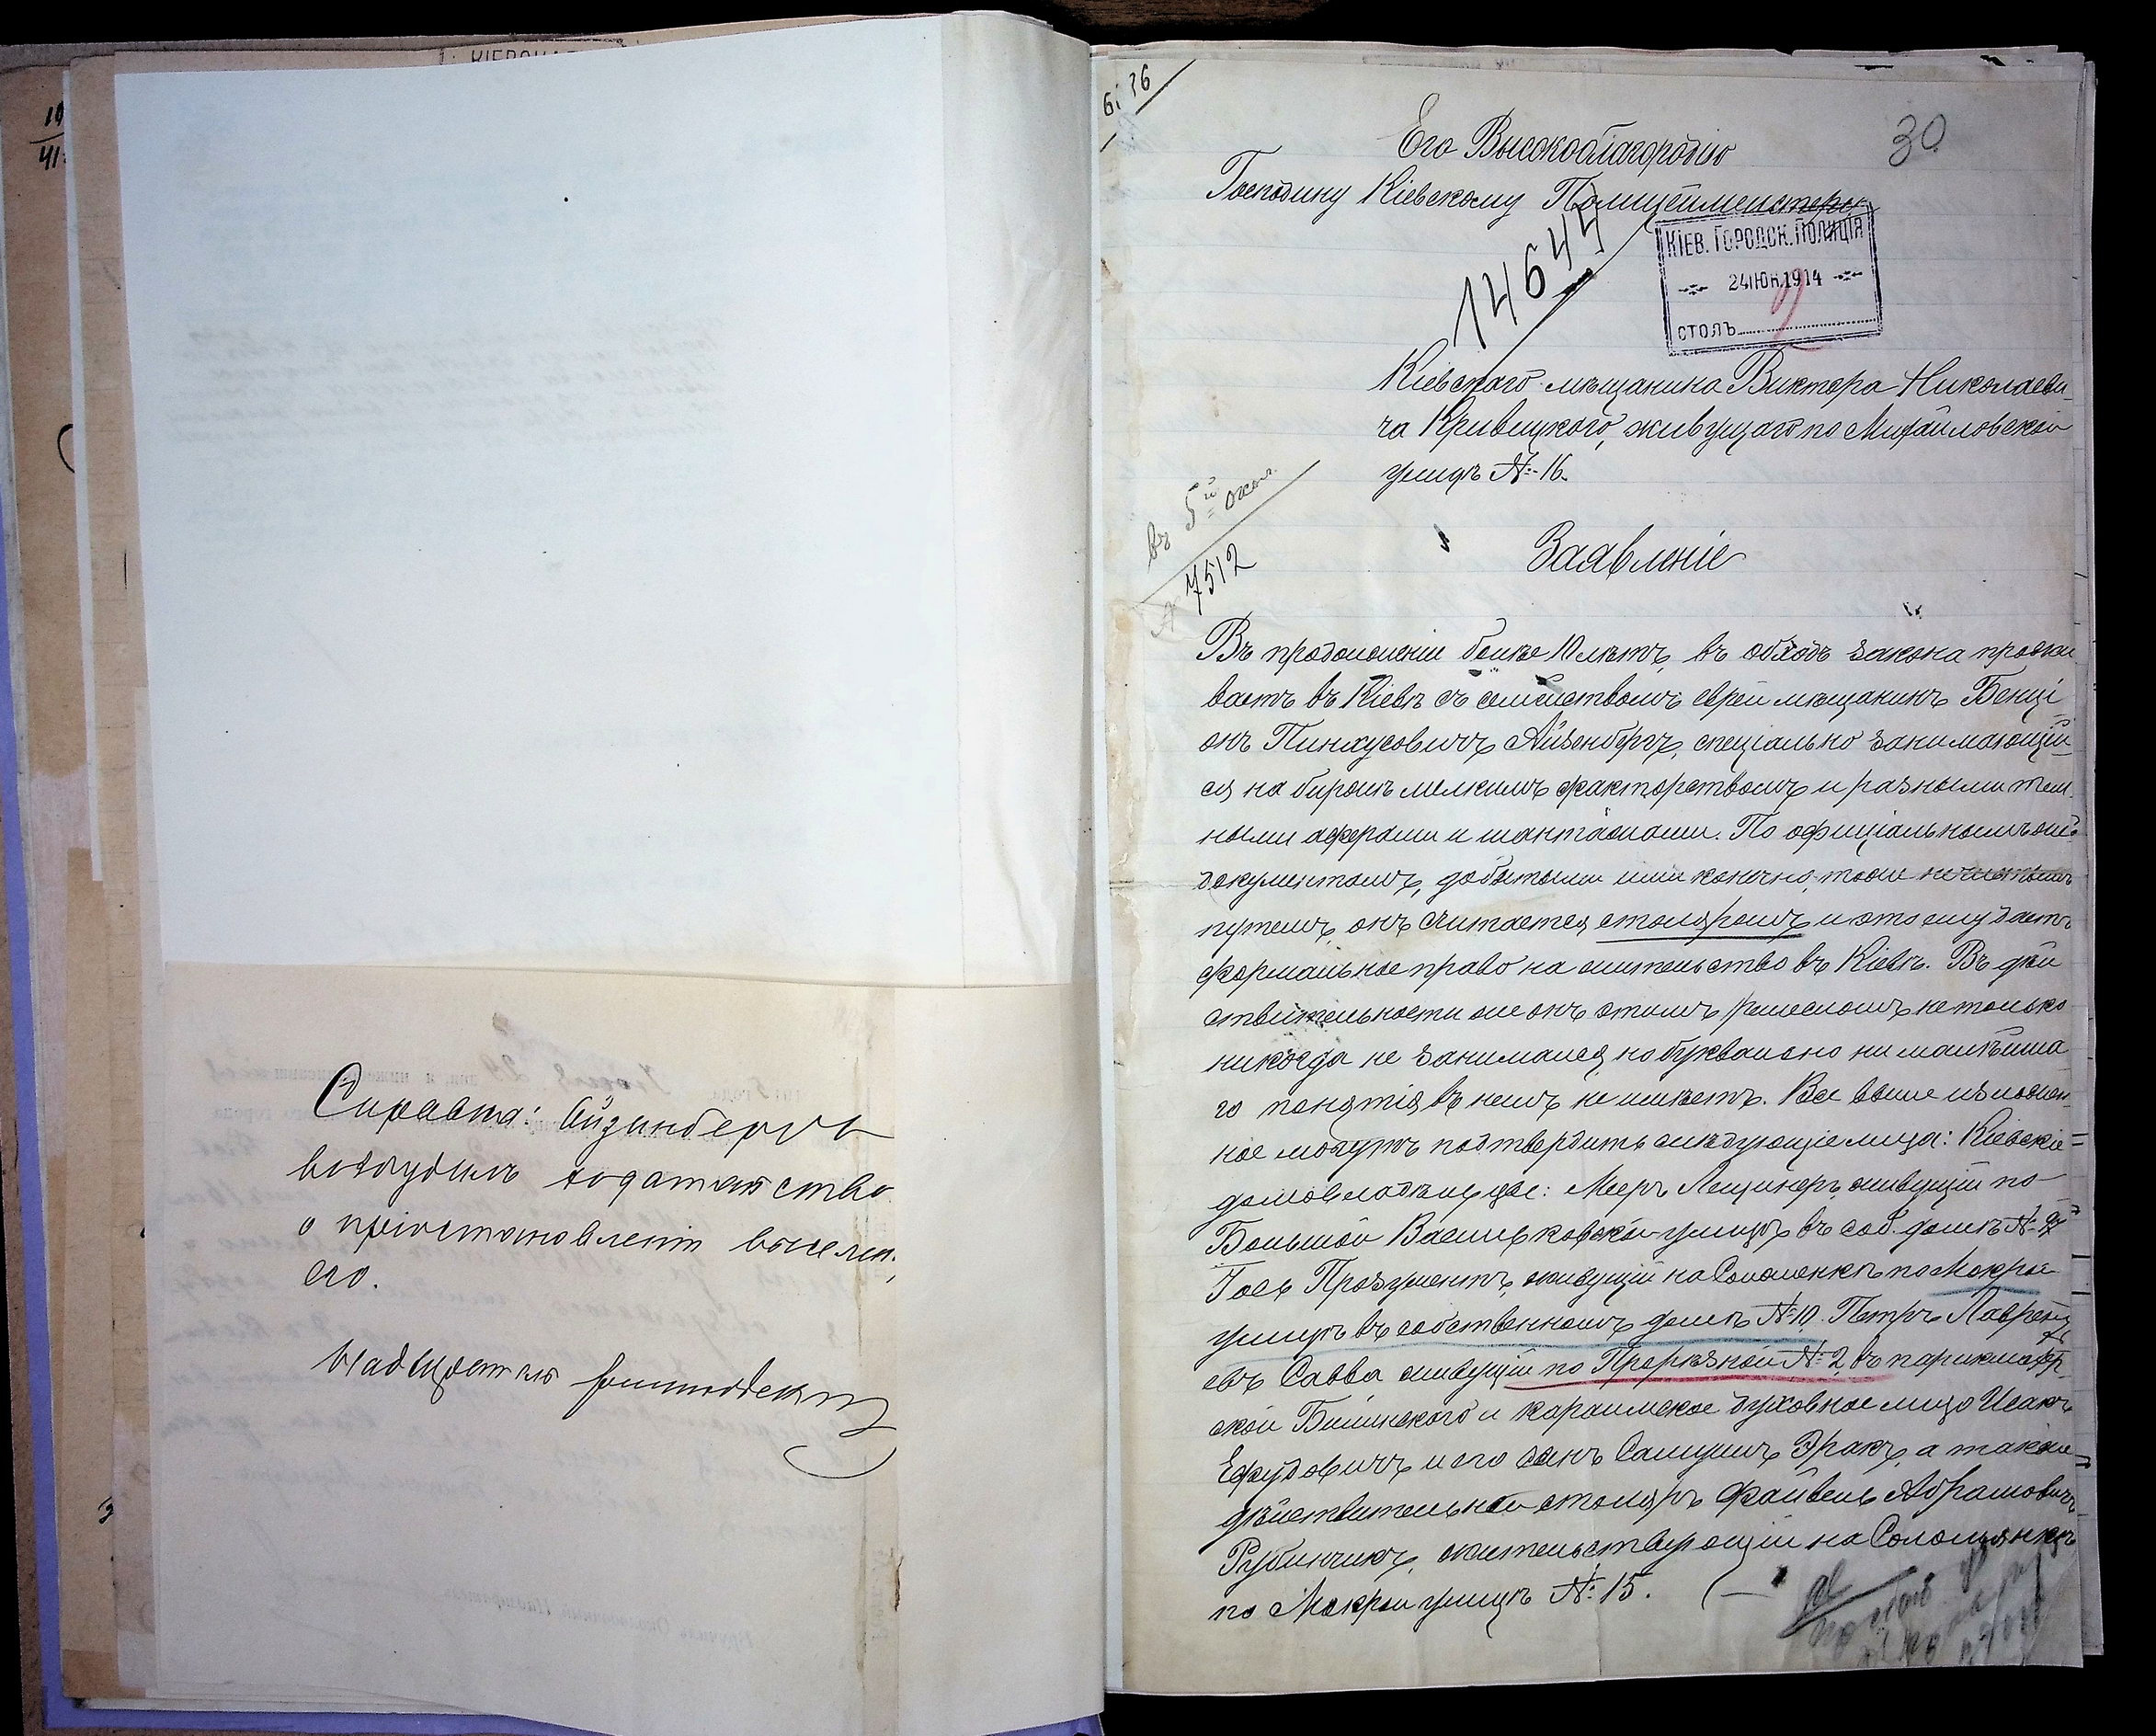 Справка: Айзинбергъ
возбудилъ ходатайство
о пріостановленіи выселен.
его.
Надзиратель
30
Его Высокоблагородію
Господину Кіевскому Полицеймейстеру
14644
КІЕВ. ГОРОДСК. ПОЛИЦІЯ
24 ІЮН. 1914
СТОЛЪ
Кіевскаго мѣщанина Виктора Николаеви-
ча Кривицкого, живущаго по Михайловской
улицѣ №-16.
въ 5й
7512
Заявленіе
Въ продолженіи болѣе 10 лѣтъ, въ обходъ закона прожи
ваетъ въ Кіевѣ съ семействомъ еврей мѣщанинъ Бенці
онъ Пинхусовичъ Айзенбергъ, спеціально занимающій-
ся на биржѣ мелкимъ факторствомъ и разными тем-
ными аферами и шантажами. По офиціальнымъ же
документомъ, добытымъ имъ конечно, тоже нечистымъ
путемъ, онъ считается столяромъ и это ему даетъ
формальное право на жительство въ Кіевѣ. Въ дѣй
ствительности же онъ этимъ ремесломъ не только
никогда не занимался, но буквально ни малѣйша
го понятія въ немъ не имѣетъ. Все выше изложен-
ное могутъ подтвердить слѣдующіе лица: Кіевскіе
домовладѣльцы: Мееръ Лещинеръ, живущій по
Большой Васильковской улицѣ въ соб. домѣ №
живущій на Соломенкѣ по Мокрой
улицѣ въ собственномъ домѣ №10. Петръ Лаврент
евъ Савва живущій по Прорѣзной №2, въ парикмахер
ской Бѣлинского и караимское духовное лицо Исакъ
Ефудовичъ и его сынъ Самуилъ Эгракъ, а также
дѣйствительный столяръ Файвель Абрамовичъ
Рубинчикъ, жительствующій на Соломянкѣ
по Мокрой улицѣ №15.